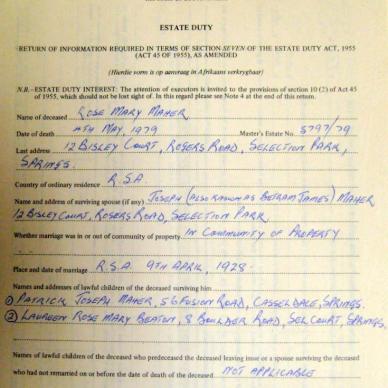 ESTATE DUTY
RETURN OF INFORMATION REQUIRED IN TERMS OF SECTION SEVEN OF THE ESTATE DUTY ACT, 1955
(ACT 45 OF 1955), AS AMENDED
(Hierdie vorm is op aanvraag in Afrikaans verkrygbaar)
N.B.–ESTATE DUTY INTEREST: The attention of executors is invited to the provisions of section 10 (2) of Act 45
of 1955, which should not be lost sight of. In this regard please see Note 4 at the end of this return.
Name of deceased ROSE MARY MAHER
Date of death 4TH MAY, 1979 Master's Estate No. 5797/79
Last address 12 BISLEY COURT, ROGERS ROAD, SELECTION PARK,
SPRINGS.
Country of ordinary residence R.S.A
Name and address of surviving spouse (if any) JOSEPH (ALSO KNOWN AS BETRAM JAMES) MAHER
12 BISLEY COURT, ROGERS ROAD, SELECTION PARK.
Whether marriage was in or out of community of property IN COMMUNITY OF PROPERTY
Place and date of marriage R.S.A. 9TH APRIL, 1928.
Names and addresses of lawful children of the deceased surviving him
① PATRICK JOSEPH MAHER, 56 FUSION ROAD, CASSELDALE, SPRINGS.
② LAUREEN ROSE MARY BEATON, 8 BOULDER ROAD, SELCOURT, SPRINGS.
Names of lawful children of the deceased who predeceased the deceased leaving issue or a spouse surviving the deceased
who had not remarried on or before the date of death of the deceased NOT APPLICABLE